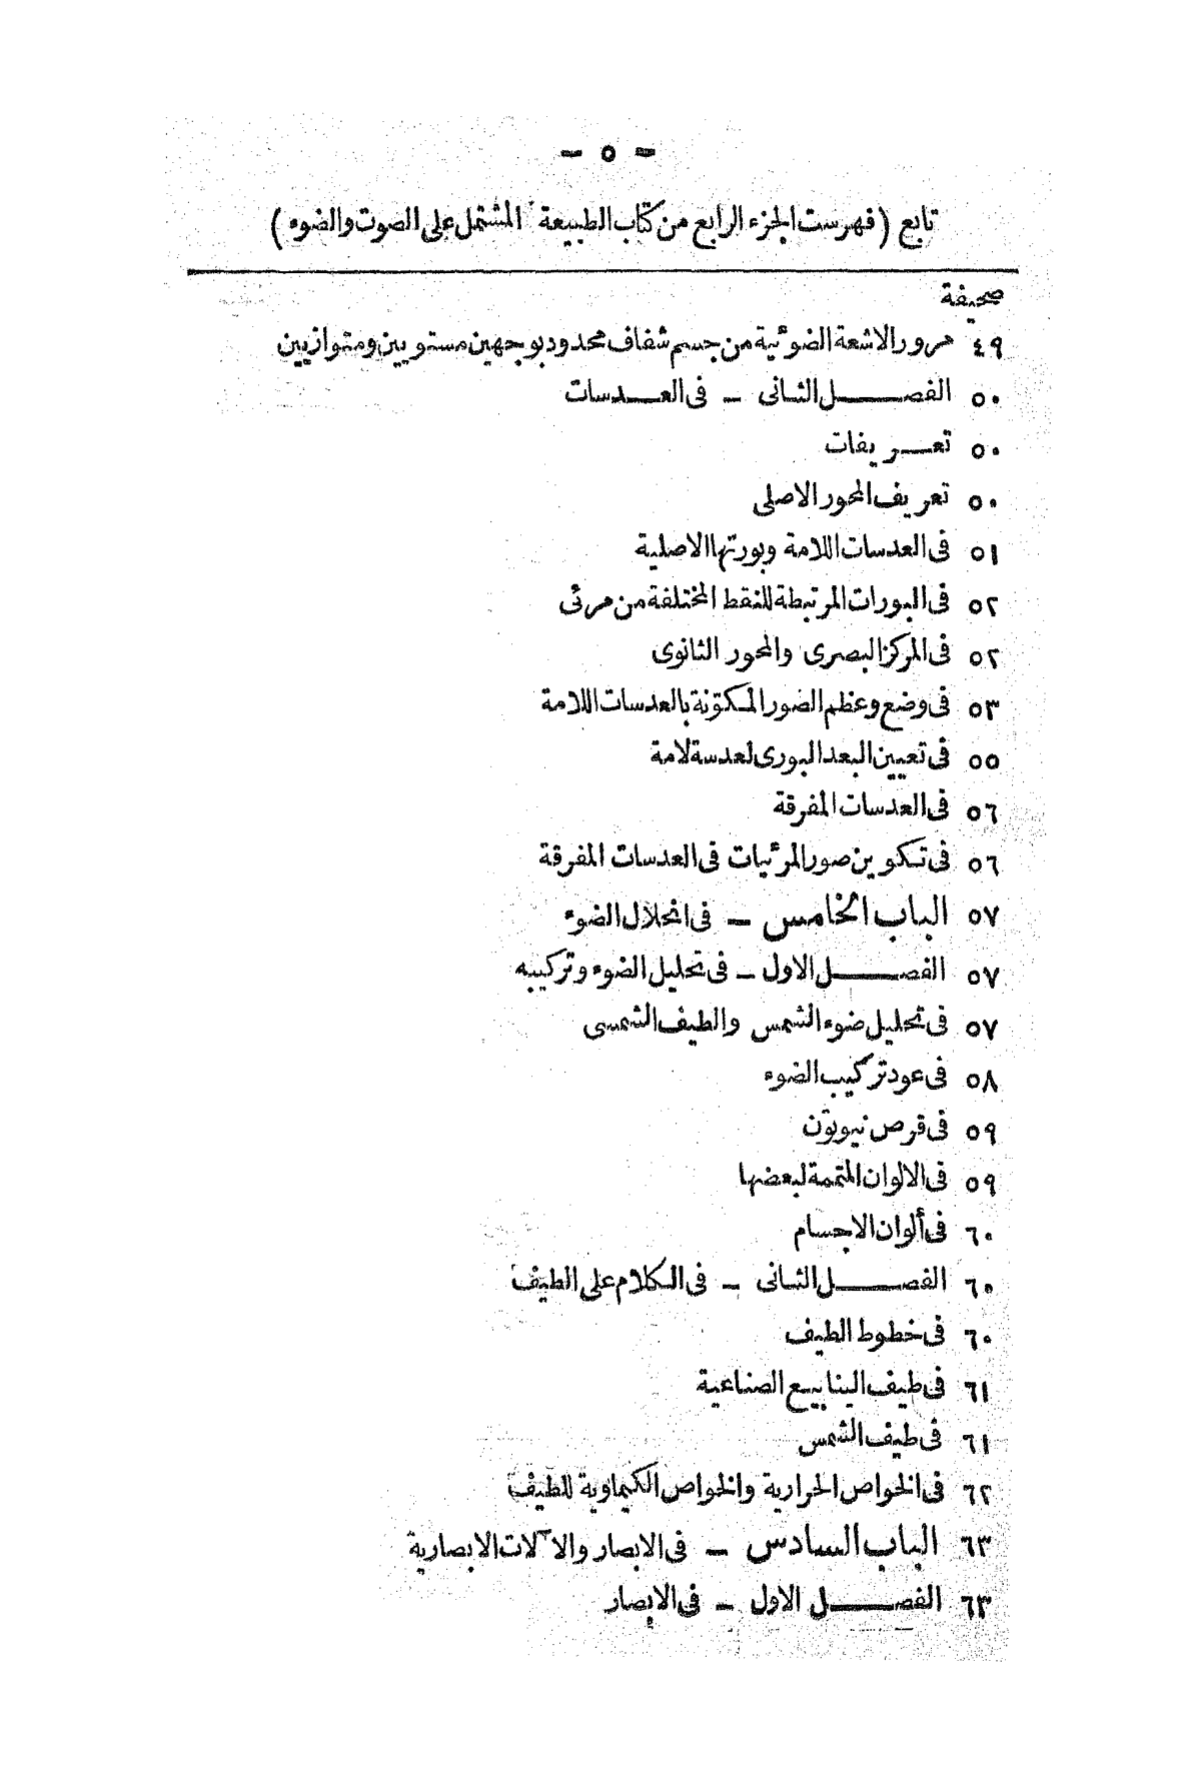 - ٥ -
تابع (فهرست الجزء الرابع من كتاب الطبيعة المشتمل على الصوت والضوء)
صحيفة
٤٩ مرور الاشعة الضوئية من جسم شفاف محدود بوجهين مستويين ومتوازيين
٥٠ الفصل الثانى - فى العدسات
٥٠ تعريفات
٥٠ تعريف المحور الاصلى
٥١ فى العدسات اللامة وبورتها الاصلية
٥٢ فى البورات المرتبطة للنقط المختلفة من مرئى
٥٢ فى المركز البصرى والمحور الثانوى
٥٣ فى وضع وعظم الصور المكوّنة بالعدسات اللامة
٥٥ فى تعيين البعد البورى لعدسة لامة
٥٦ فى العدسات المفرقة
٥٦ فى تكوين صور المرئيات فى العدسات المفرقة
٥٧ الباب الخامس - فى انحلال الضوء
٥٧ الفصل الاول - فى تحليل الضوء وتركيبه
٥٧ فى تحليل ضوء الشمس والطيف الشمسى
٥٨ فى عود تركيب الضوء
٥٩ فى قرص نيوتون
٥٩ فى الالوان المتممة لبعضها
٦٠ فى ألوان الاجسام
٦٠ الفصل الثانى - فى الكلام على الطيف
٦٠ فى خطوط الطيف
٦١ فى طيف الينابيع الصناعية
٦١ فى طيف الشمس
٦٢ فى الخواص الحرارية والخواص الكيماوية للطيف
٦٣ الباب السادس - فى الابصار والآلات الابصارية
٦٣ الفصل الاول - فى الابصار